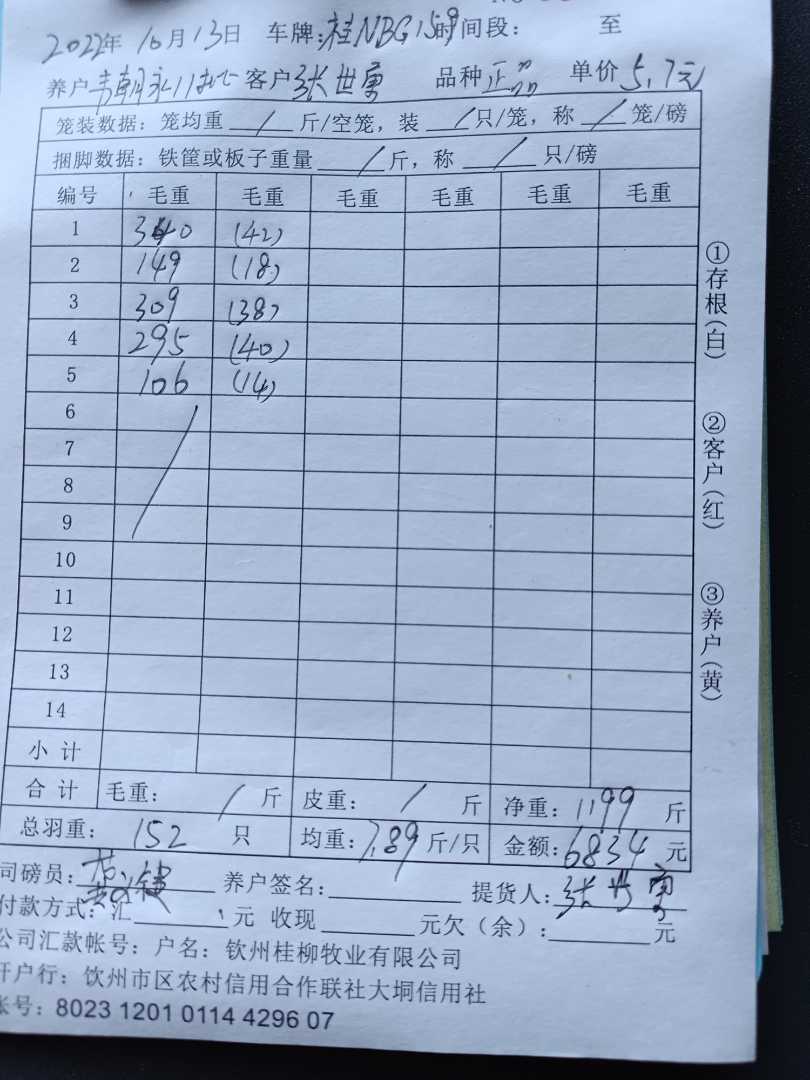 2022年 10月13日 车牌:桂NBG159时间段: 至
养户 韦朝永 客户 张世勇 品种 正品 单价 5.7元
笼装数据: 笼均重 / 斤/空笼, 装 / 只/笼, 称 / 笼/磅
捆脚数据: 铁筐或板子重量 / 斤, 称 / 只/磅
编号 毛重 毛重 毛重 毛重 毛重 毛重
1 340 (42)
2 149 (18)
3 309 (38)
4 295 (40)
5 106 (14)
6
7
8
9
10
11
12
13
14
小 计
合 计 毛重: / 斤 皮重: / 斤 净重: 1199 斤
总羽重: 152 只 均重: 7.89 斤/只 金额: 6834 元
司磅员: 养户签名: 提货人: 张世勇
付款方式: 汇 元 收现 元欠(余): 元
公司汇款帐号: 户名: 钦州桂柳牧业有限公司
开户行: 钦州市区农村信用合作联社大垌信用社
帐号: 8023 1201 0114 4296 07
①存根(白)
②客户(红)
③养户(黄)